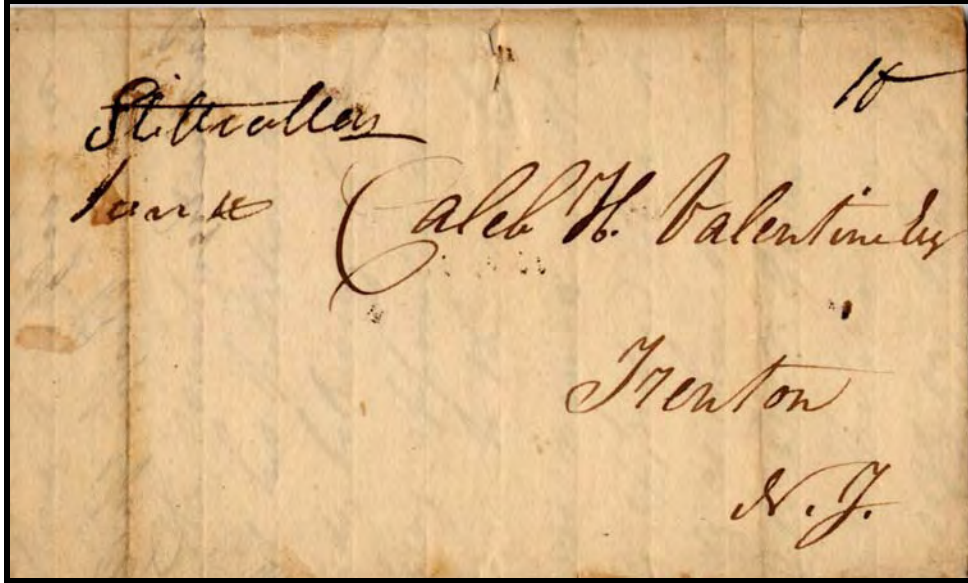 Stillvalley 10
Caleb H. Valentine Esq
Trenton
N. J.